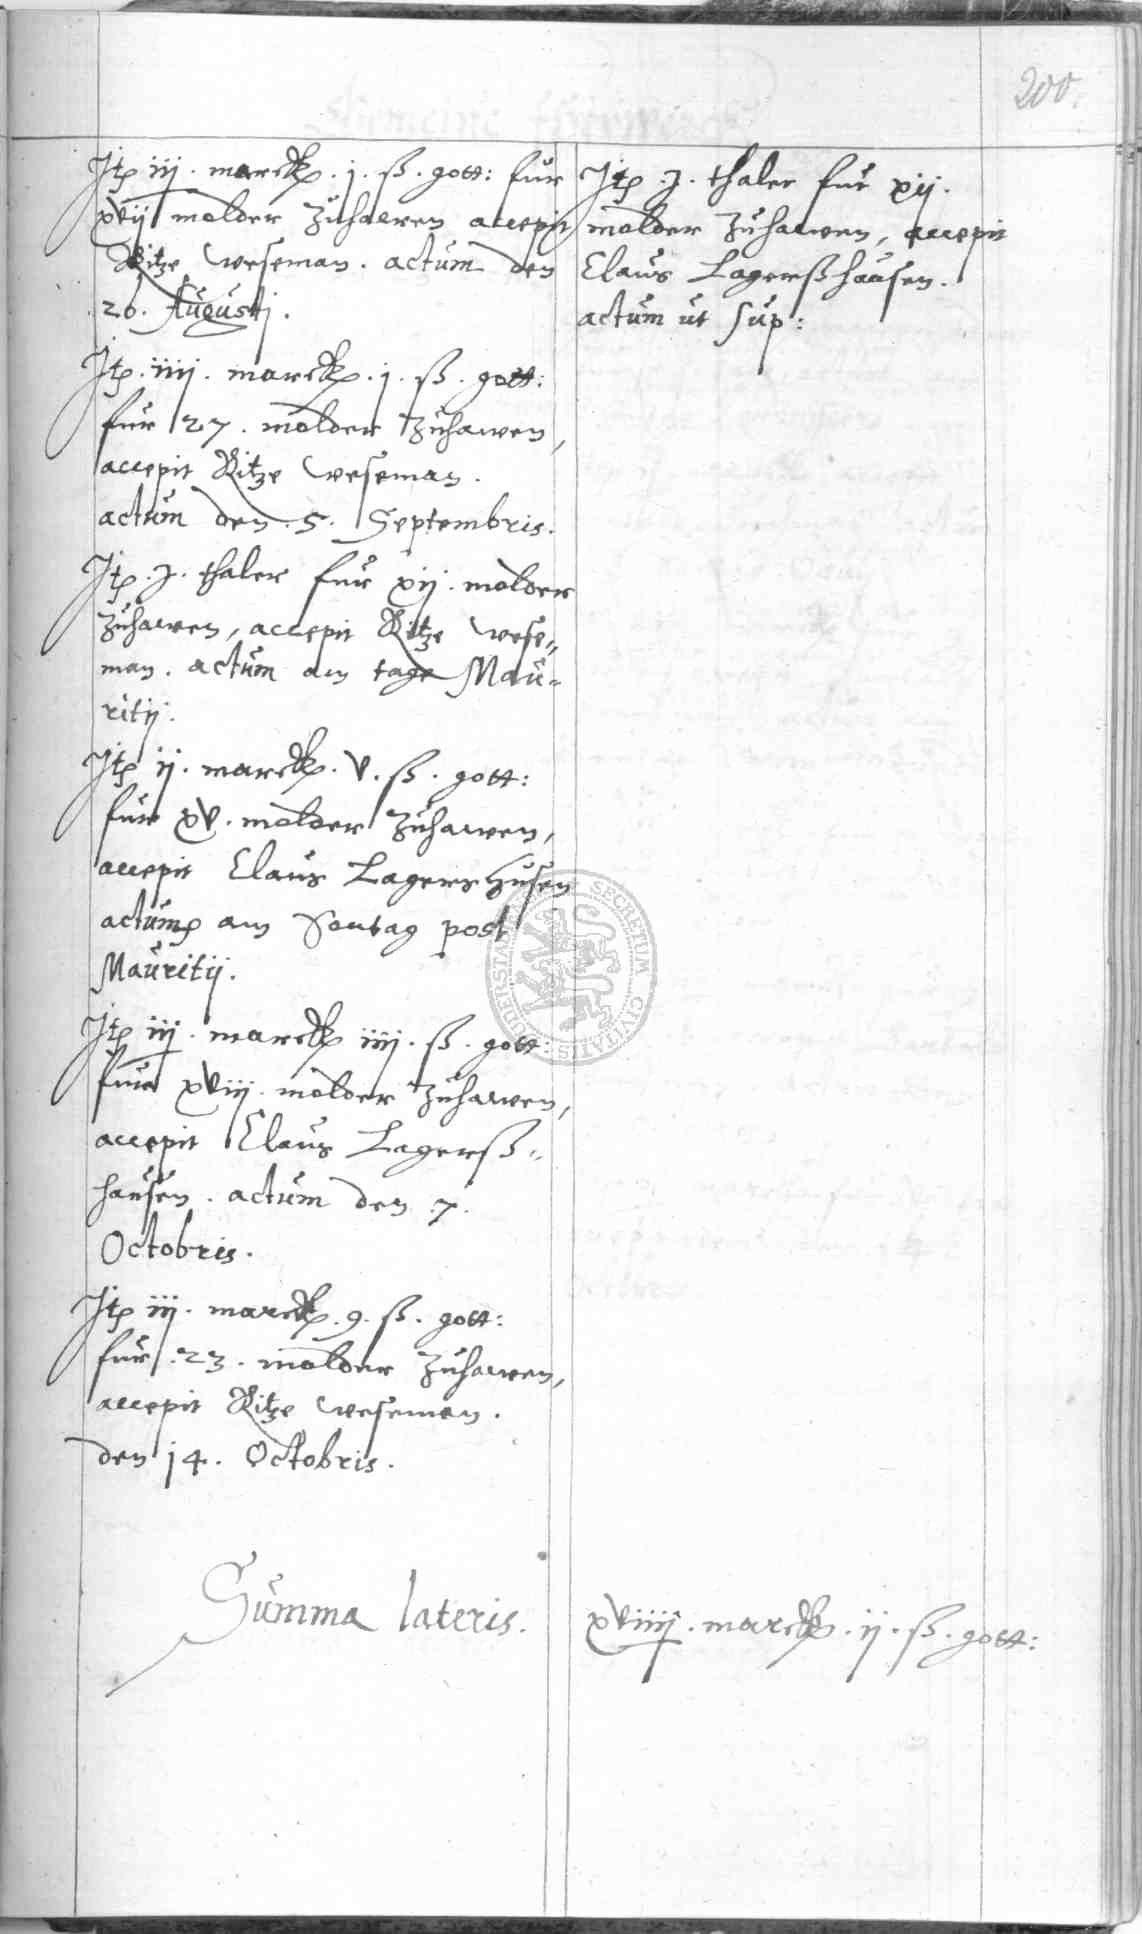 200.
Jtem iij. marck. j. ß. gott: fur
xvij molder zuhawen accepit
Ritze Weseman. actum den
26. Augustj.
Jtem. iiij. marck. j. ß. gott:
fur 27. molder zuhawen,
accepit Ritze Weseman.
actum den. 5. Septembris.
Jtem. j. thaler fur xij. molder
zuhawen, accepit Ritze Wese-
man. actum am tage Mau-
ritij.
Jtem ij. marck. v. ß. gott:
fur xv. molder zuhawen,
accepit Claus Lagershusen
actum am Sontag post
Mauritij.
Jtem iij. marck iiij. ß. gott:
fur xviij. molder zuhawen,
accepit Claus Lagerß-
hausen. actum den 7.
Octobris.
Jtem iij. marck. 9. ß. gott:
fur. 23. molder zuhawen,
accepit Ritze Weseman.
den 14. Octobris.
Jtem. j. thaler fur xij.
molder zuhawen, accepit
Claus Lagerßhausen.
actum ut sup:
Summa lateris. xviiij. marck. ij. ß. gott:
SECRETUM CIVITATIS